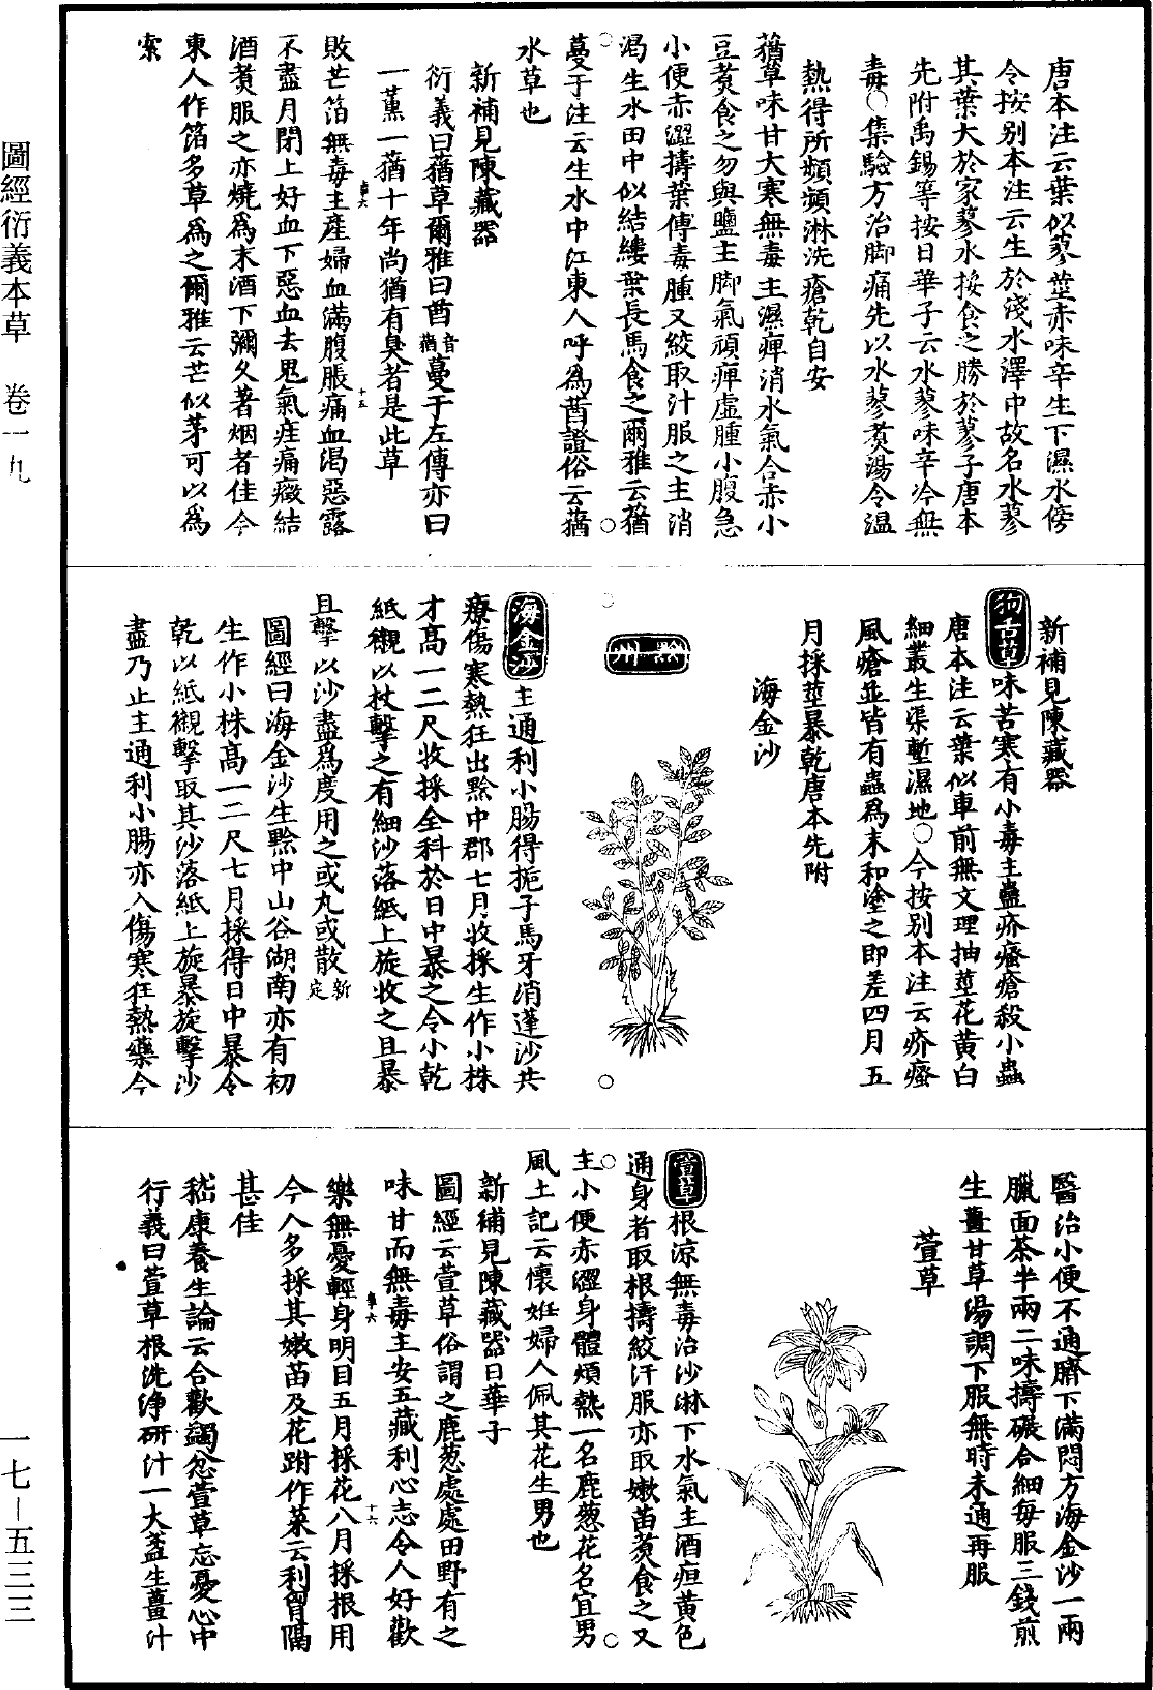 唐本注云葉似蓼莖赤味辛生下濕水傍
今按别本注云生於淺水澤中故名水蓼
其葉大於家蓼水挼食之勝於蓼子唐本
先附禹錫等按日華子云水蓼味辛冷無
毒○集驗方治脚痛先以水蓼煑湯令温
熱得所頻頻淋洗瘡乾自安
蕕草味甘大寒無毒主濕痺消水氣合赤小
豆煑食之勿與鹽主脚氣頑痺虛腫小腹急
小便赤澀擣葉傅毒腫又絞取汁服之主消
渴生水田中似結縷葉長馬食之爾雅云蕕
蔓于注云生水中江東人呼為茜證俗云蕕
水草也
新補見陳藏器
衍義曰蕕草爾雅曰茜音蕕蔓于左傳亦曰
一薰一蕕十年尚猶有臭者是此草
敗芒箔無毒主産婦血滿腹脹痛血渴惡露
不盡月閉上好血下惡血去鬼氣疰痛癥結
酒煑服之亦燒爲末酒下彌久著烟者佳今
東人作箔多草爲之爾雅云芒似茅可以爲
索
新補見陳藏器
狗舌草味苦寒有小毒主蠱疥瘙瘡殺小蟲
唐本注云葉似車前無文理抽莖花黃白
細叢生渠塹濕地○今按别本注云疥瘙
風瘡並皆有蟲爲末和塗之即差四月五
月採莖暴乾唐本先附
海金沙
黔州
海金沙主通利小腸得梔子馬牙消蓬沙共
療傷寒熱狂出黔中郡七月收採生作小株
才高一二尺收採全科於日中暴之令小乾
紙襯以杖擊之有細沙落紙上旋收之且暴
且擊以沙盡爲度用之或丸或散新定
圖經曰海金沙生黔中山谷湖南亦有初
生作小株高一二尺七月採得日中暴令
乾以紙襯擊取其沙落紙上旋暴旋擊沙
盡乃止主通利小腸亦入傷寒狂熱藥今
醫治小便不通臍下滿悶方海金沙一兩
臘面茶半兩二味擣碾合細每服三錢煎
生薑甘草湯調下服無時未通再服
萱草
萱草根涼無毒治沙淋下水氣主酒疸黃色
通身者取根擣絞汁服亦取嫩苗煑食之又
主小便赤澀身體煩熱一名鹿葱花名宜男
風土記云懷姙婦人佩其花生男也
新補見陳藏器日華子
圖經云萱草俗謂之鹿葱處處田野有之
味甘而無毒主安五藏利心志令人好歡
樂無憂輕身明目五月採花八月採根用
今人多採其嫩苗及花跗作菜云利胷膈
甚佳
嵇康養生論云合歡蠲忿萱草忘憂心中
衍義曰萱草根洗淨研汁一大盞生薑汁
圖經衍義本草　卷一九
一七—五三三